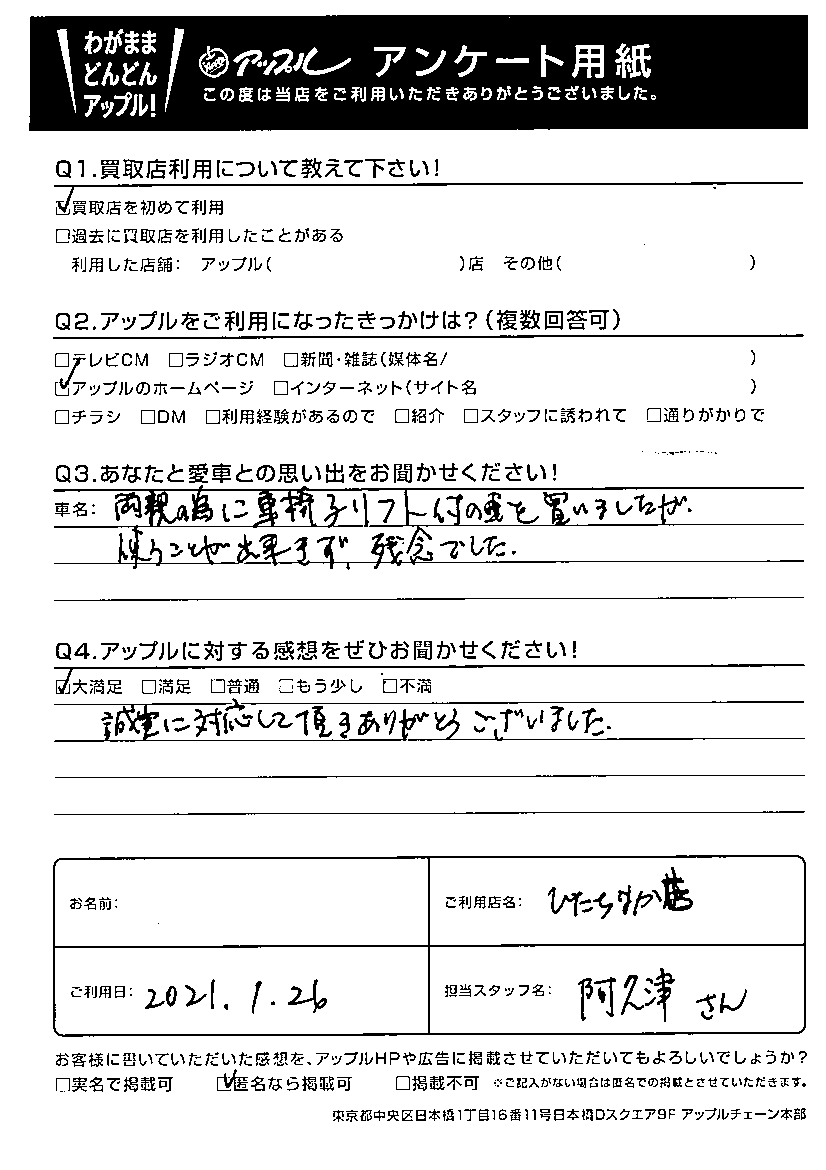 わがまま
どんどん
アップル!
アップル アンケート用紙
この度は当店をご利用いただきありがとうございました。
Q1.買取店利用について教えて下さい!
☑買取店を初めて利用
□過去に買取店を利用したことがある
利用した店舗: アップル( )店 その他( )
Q2.アップルをご利用になったきっかけは?(複数回答可)
□テレビCM □ラジオCM □新聞・雑誌(媒体名/ )
☑アップルのホームページ □インターネット(サイト名 )
□チラシ □DM □利用経験があるので □紹介 □スタッフに誘われて □通りがかりで
Q3.あなたと愛車との思い出をお聞かせください!
車名: 両親の為に車椅子リフト付の車を買いましたが、
使うことが出来ず、残念でした。
Q4.アップルに対する感想をぜひお聞かせください!
☑大満足 □満足 □普通 □もう少し □不満
誠実に対応して頂きありがとうございました。
お名前:
ご利用店名: ひたちなか店
ご利用日: 2021.1.26
担当スタッフ名: 阿久津 さん
お客様に書いていただいた感想を、アップルHPや広告に掲載させていただいてもよろしいでしょうか?
□実名で掲載可 ☑匿名なら掲載可 □掲載不可 ※ご記入がない場合は匿名での掲載とさせていただきます。
東京都中央区日本橋1丁目16番11号日本橋Dスクエア9F アップルチェーン本部